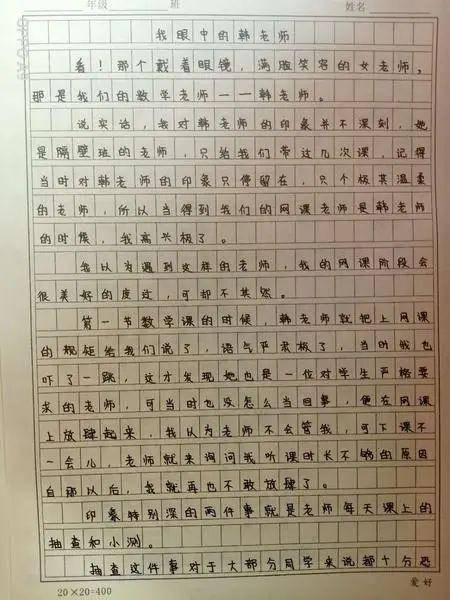 年级 班 姓名
我眼中的韩老师
看！那个戴着眼镜，满脸笑容的女老师，
那是我们的数学老师——韩老师。
说实话，我对韩老师的印象并不深刻，她
是隔壁班的老师，只给我们带过几次课，记得
当时对韩老师的印象只停留在，只个极其温柔
的老师，所以当得到我们的网课老师是韩老师
的时候，我高兴极了。
我以为遇到这样的老师，我的网课阶段会
很美好的度过，可却不其然。
第一节数学课的时候，韩老师就把上网课
的规矩给我们说了，语气严肃极了，当时我也
吓了一跳，这才发现她也是一位对学生严格要
求的老师，可当时也没怎么当回事，便在网课
上放肆起来，我以为老师不会管我，可下课不
一会儿，老师就来询问我听课时长不够的原因
自那以后，我就再也不敢放肆了。
印象特别深的两件事就是老师每天课上的
抽查和小测。
抽查这件事对于大部分同学来说都十分恐
20×20=400 爱好